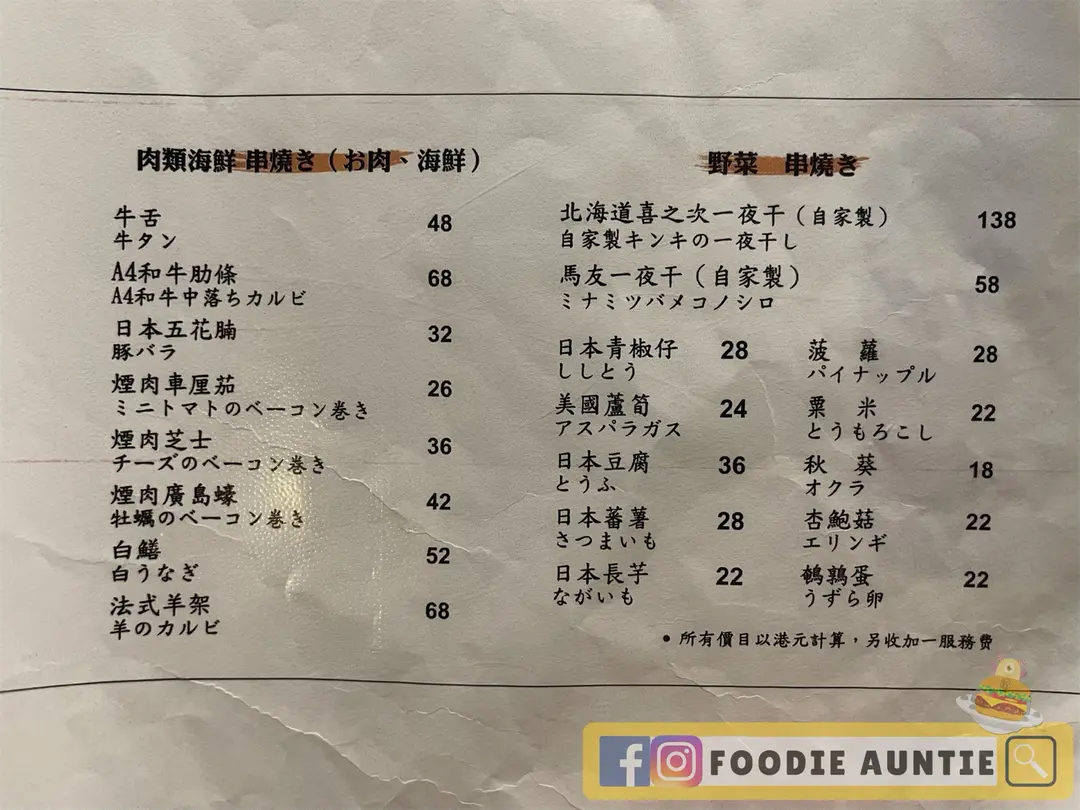 肉類海鮮 串燒き（お肉、海鮮）
牛舌 48
牛タン
A4和牛肋條 68
A4和牛中落ちカルビ
日本五花腩 32
豚バラ
煙肉車厘茄 26
ミニトマトのベーコン巻き
煙肉芝士 36
チーズのベーコン巻き
煙肉廣島蠔 42
牡蠣のベーコン巻き
白鱔 52
白うなぎ
法式羊架 68
羊のカルビ
野菜 串燒き
北海道喜之次一夜干（自家製） 138
自家製キンキの一夜干し
馬友一夜干（自家製） 58
ミナミツバメコノシロ
日本青椒仔 28
ししとう
美國蘆筍 24
アスパラガス
日本豆腐 36
とうふ
日本蕃薯 28
さつまいも
日本長芋 22
ながいも
菠 蘿 28
パイナップル
粟 米 22
とうもろこし
秋 葵 18
オクラ
杏鮑菇 22
エリンギ
鵪鶉蛋 22
うずら卵
• 所有價目以港元計算，另收加一服務費
FOODIE AUNTIE